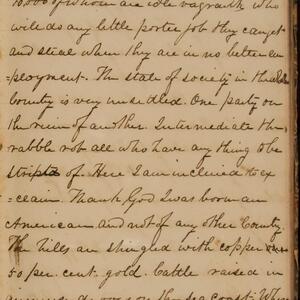 10,000 of whom are idle vagrants who
will do any little porter job they can get
and steal when they are in no better em
=ployment. The state of society in this
County is very unsettled. One party on
the ruin of another. Intermediate the
rabble rob all who have any thing to be
stripted of. Here I am inclined to ex
=claim. Thank God I was born an
American and not of any other County.
The hills are shingled with copper
50 per. cent. gold. Cattle raised in